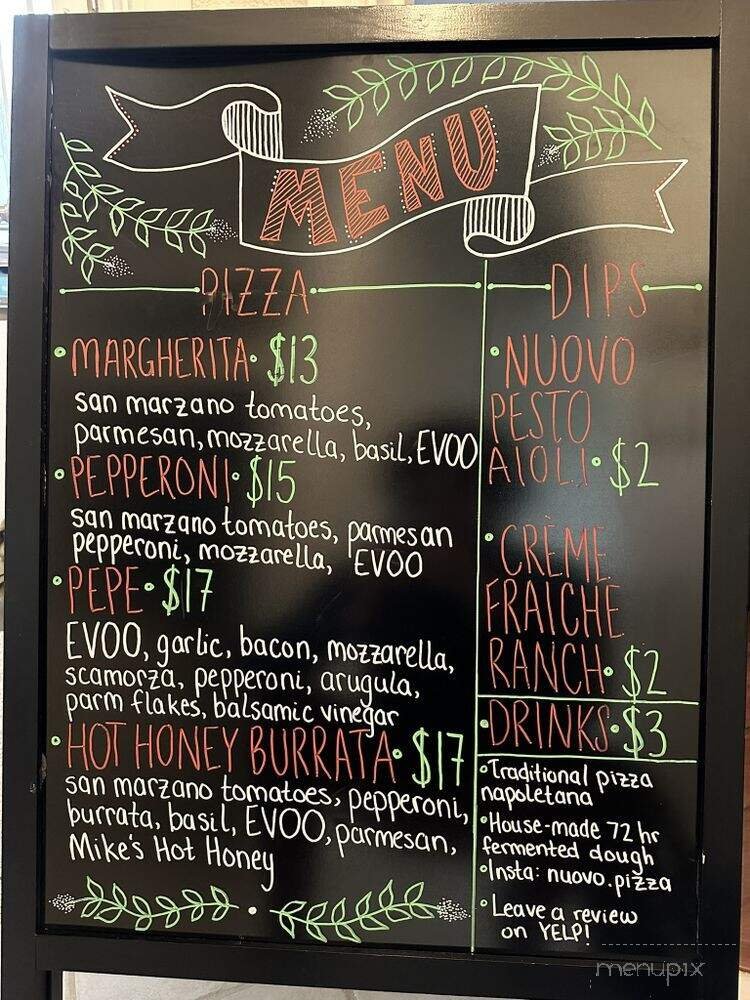 MENU
PIZZA
MARGHERITA • $13
san marzano tomatoes,
parmesan, mozzarella, basil, EVOO
PEPPERONI • $15
san marzano tomatoes, parmesan
pepperoni, mozzarella, EVOO
PEPE • $17
EVOO, garlic, bacon, mozzarella,
scamorza, pepperoni, arugula,
parm flakes, balsamic vinegar
HOT HONEY BURRATA • $17
san marzano tomatoes, pepperoni,
burrata, basil, EVOO, parmesan,
Mike's Hot Honey
DIPS
• NUOVO
PESTO
AIOLI • $2
• CRÈME
FRAICHE
RANCH • $2
• DRINKS • $3
• Traditional pizza
napoletana
• House-made 72 hr
fermented dough
• Insta: nuovo.pizza
• Leave a review
on YELP!
menupix